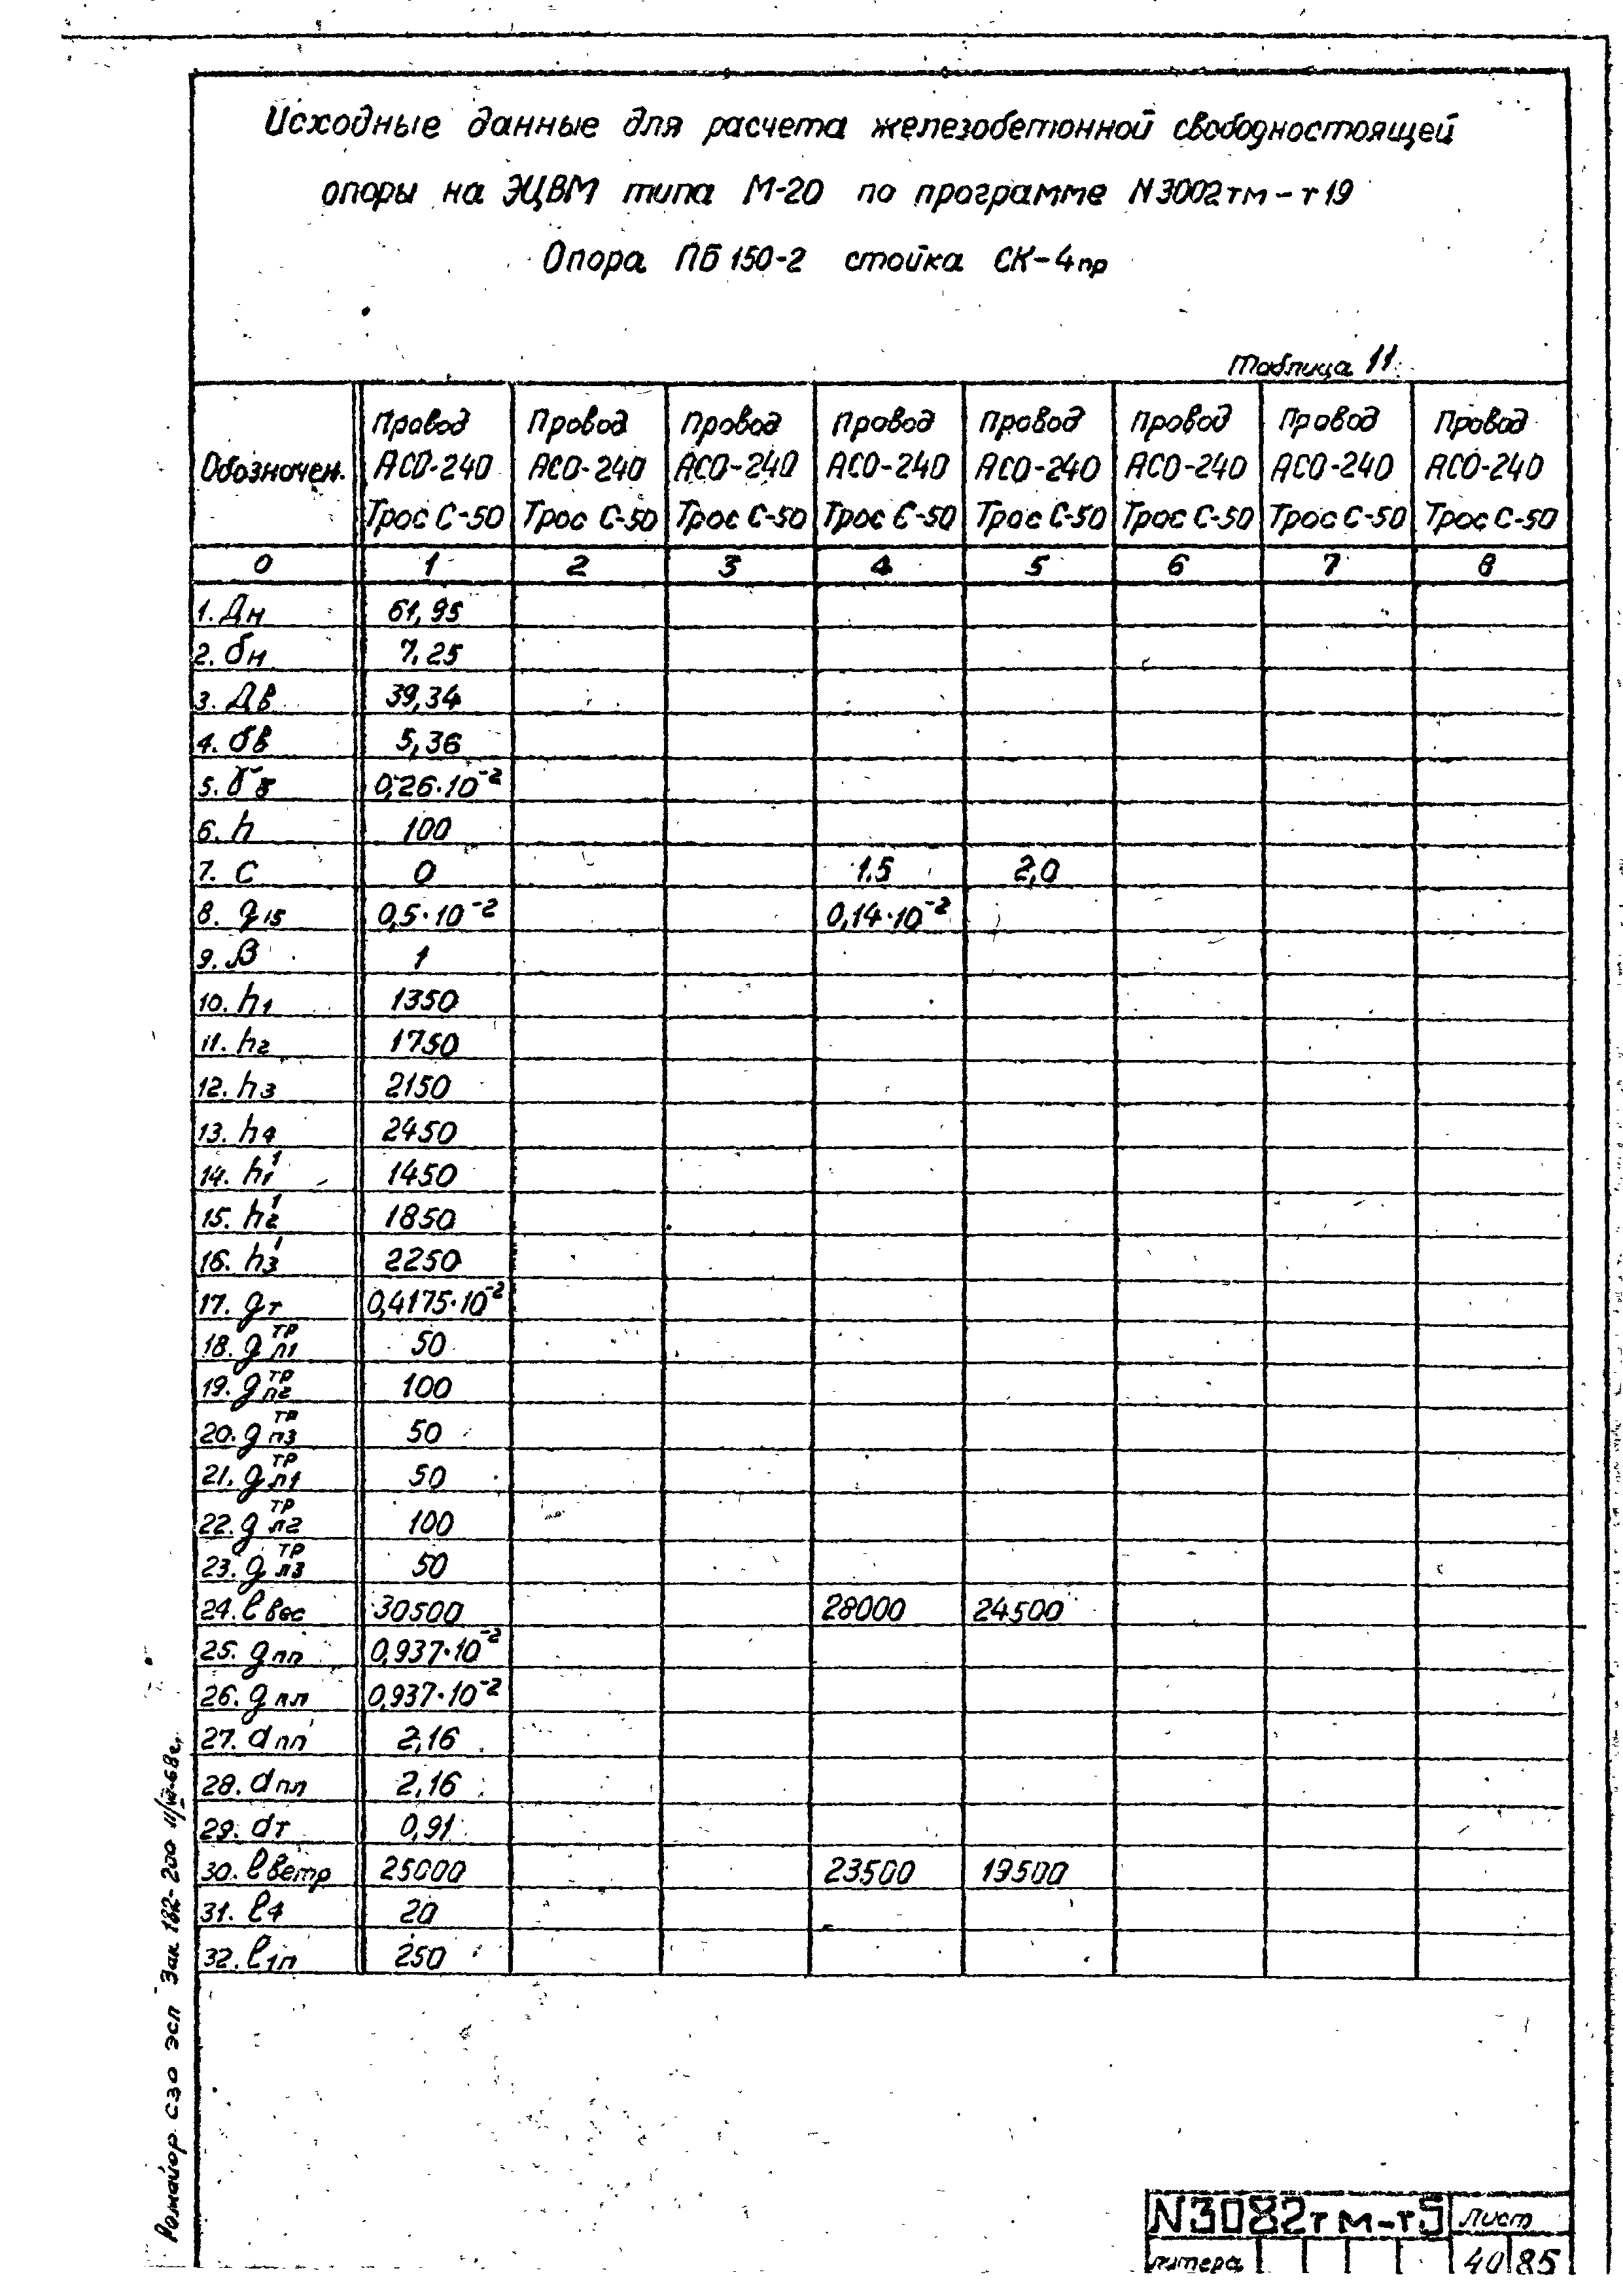 Исходные данные для расчета железобетонной свободностоящей
опоры на ЭЦВМ типа М-20 по программе N3002тм-т19
Опора ПБ150-2 стойка СК-4пр
Таблица 11
Обозначен. Провод АСО-240 Трос С-50 Провод АСО-240 Трос С-50 Провод АСО-240 Трос С-50 Провод АСО-240 Трос С-50 Провод АСО-240 Трос С-50 Провод АСО-240 Трос С-50 Провод АСО-240 Трос С-50 Провод АСО-240 Трос С-50
0 1 2 3 4 5 6 7 8
1. Дн 61,95
2. δн 7,25
3. Дв 39,34
4. δв 5,36
5. 0,26·10⁻²
6. h 100
7. C 0 1.5 2,0
8. g15 0,5·10⁻² 0,14·10⁻²
9. β 1
10. h1 1350
11. h2 1750
12. h3 2150
13. h4 2450
14. h1¹ 1450
15. h2¹ 1850
16. h3¹ 2250
17. gт 0,4175·10⁻²
18. g тр п1 50
19. g тр п2 100
20. g тр п3 50
21. g тр л1 50
22. g тр л2 100
23. g тр л3 50
24. ℓвес 30500 28000 24500
25. gпп 0,937·10⁻²
26. gпл 0,937·10⁻²
27. dпп 2,16
28. dпл 2,16
29. dт 0,91
30. ℓветр 25000 23500 19500
31. ℓ4 20
32. ℓ1п 250
Ротайор. СЗО ЭСП Зак. 182-200 68г.
N3082тм-т5 Лист
Литера 40 85